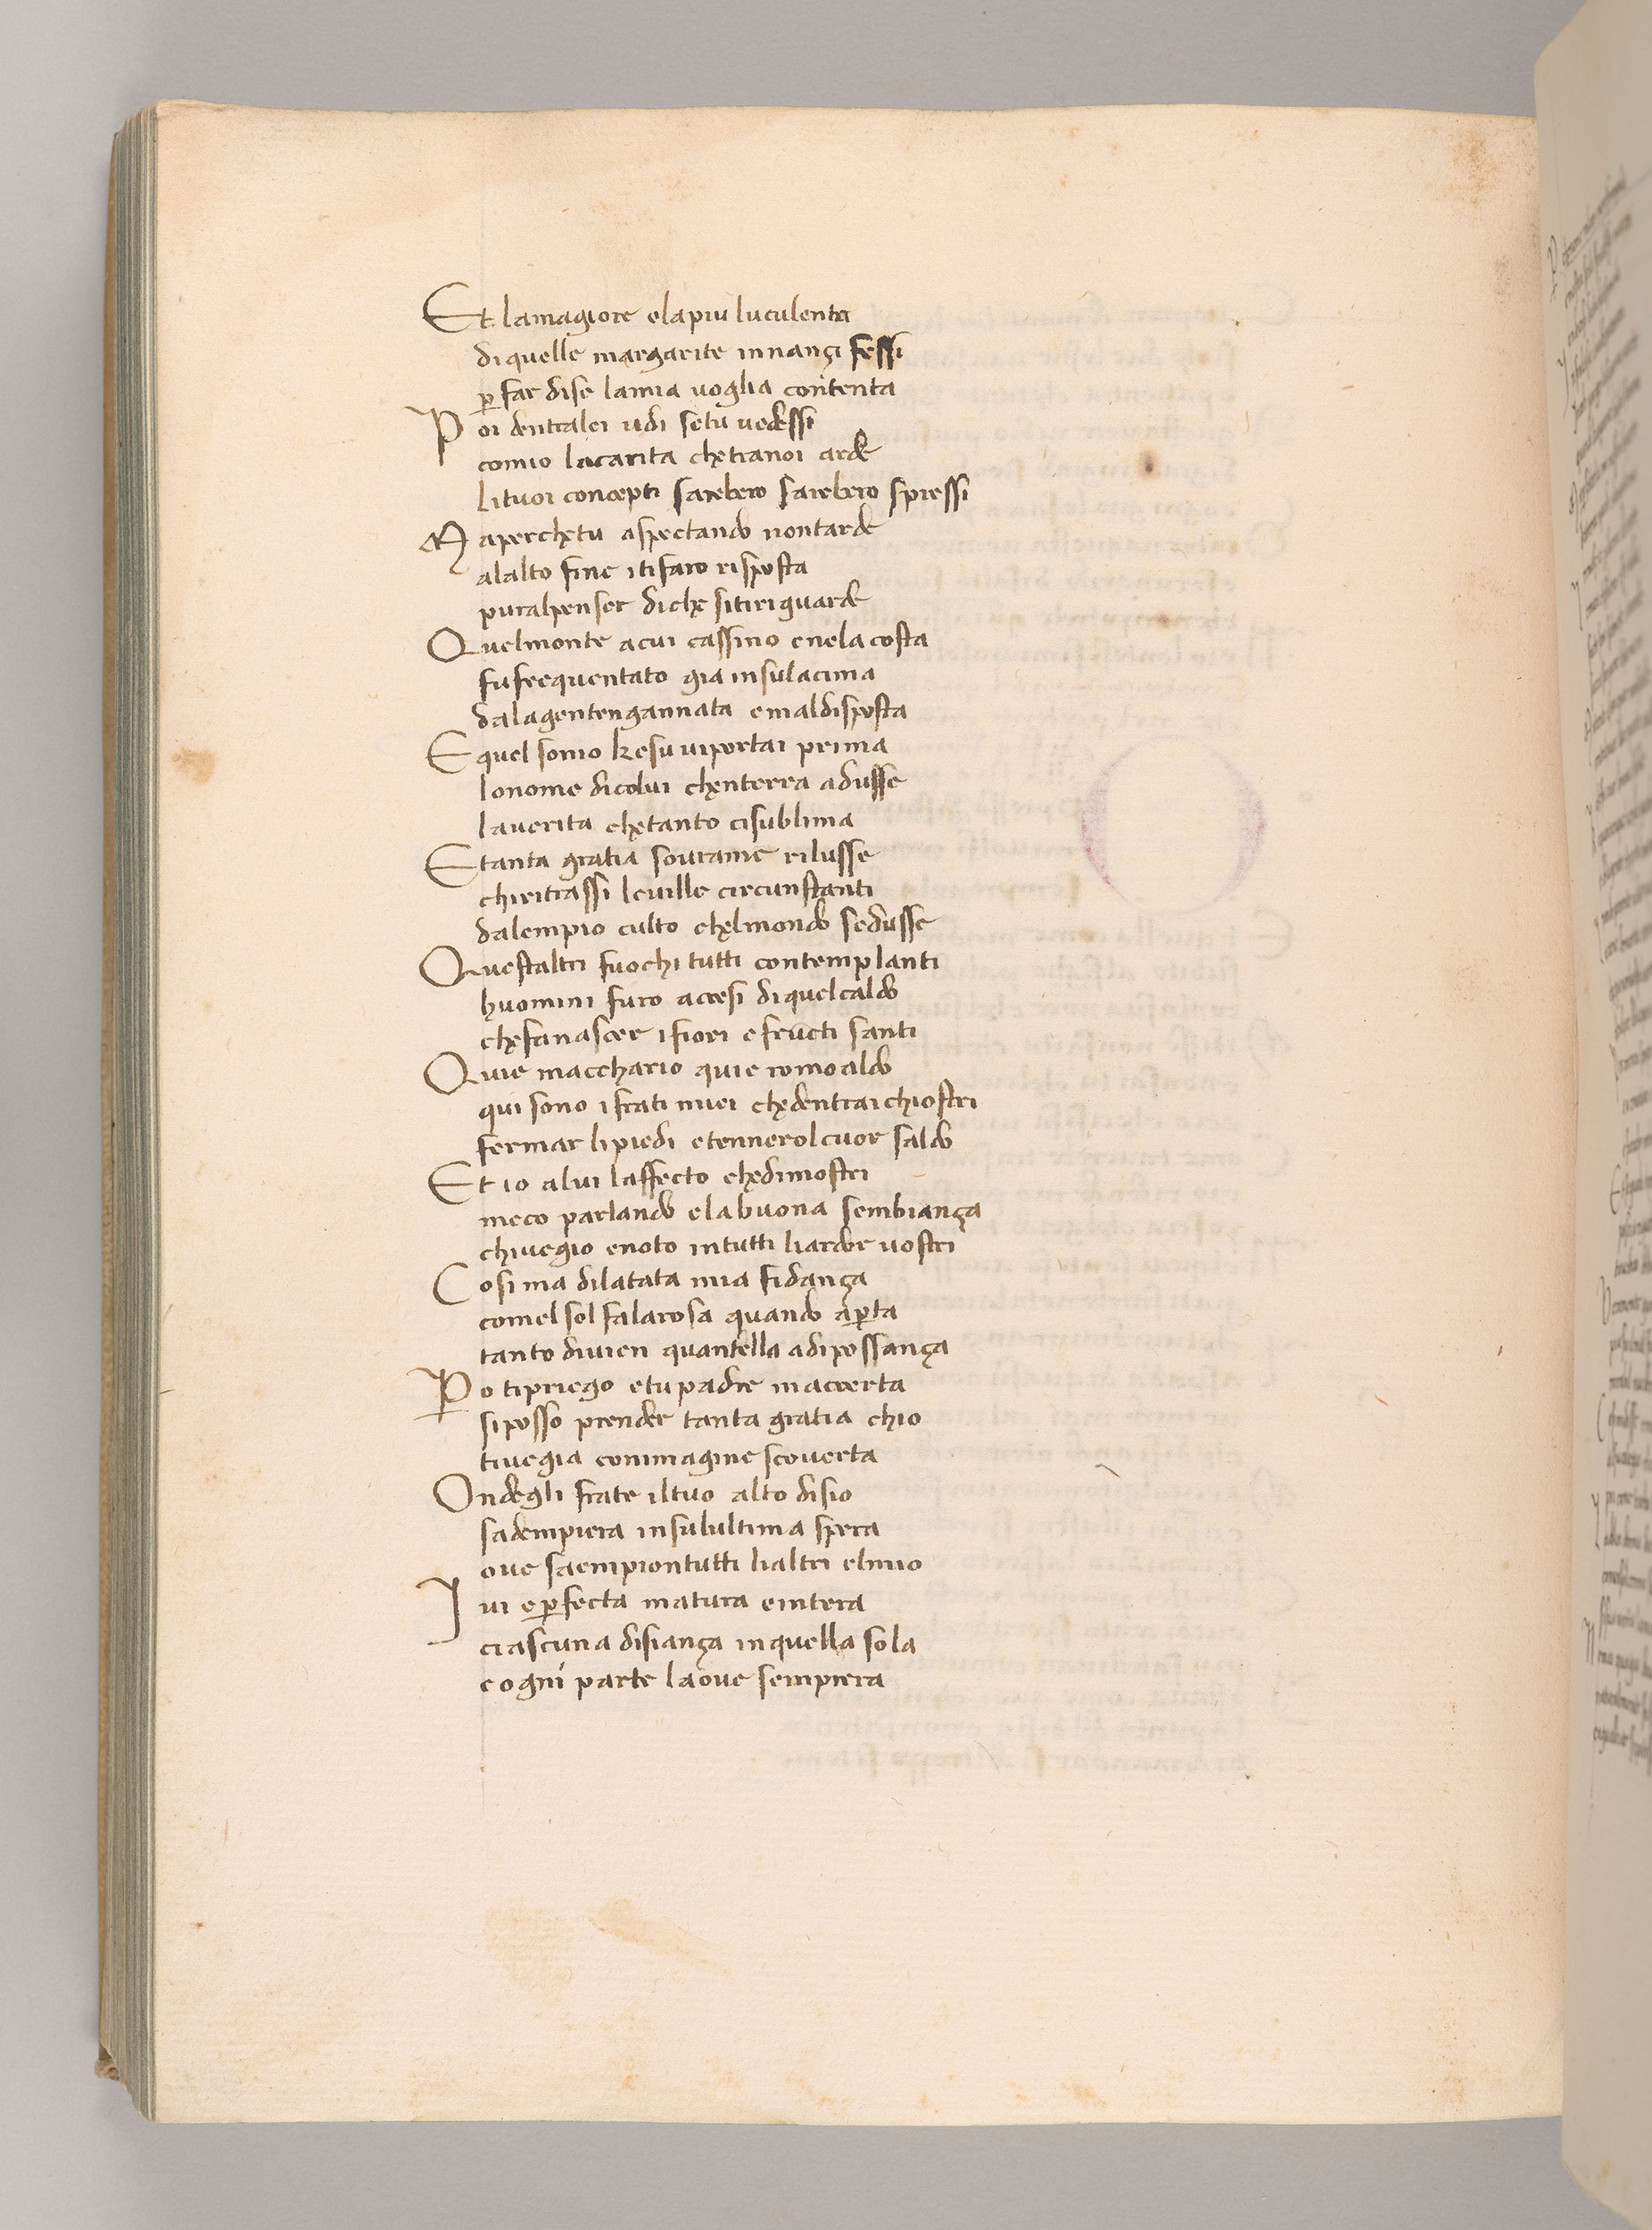 Et lamagiore elapiu luculenta
diquelle margarite innançi fessi
ꝑ far dise lamia uoglia contenta
Poi dentralei udi setu uedessi
comio lacarita chetranoi arde
lituoi concepti sarebero sarebero spressi
Maperchetu aspectando nontarde
alalto fine itifaro risposta
puralpenser diche sitiriguarde
Quelmonte acui cassino enela costa
fufrequentato gia insulacima
dalagentengannata emaldisposta
Equel sonio kesu uiportai prima
lonome dicolui chenterra adusse
lauerita chetanto cisublima
Etanta gratia sourame rilusse
chiritrassi leuille circunstanti
dalempio culto chelmondo sedusse
Questaltri fuochi tutti contemplanti
huomini furo accesi diquelcaldo
chefanascer ifiori efructi santi
Quie macchario quie romoaldo
qui sono ifrati miei chedentraichiostri
fermar lipiedi etennerolcuor saldo
Et io alui laffecto chedimostri
meco parlando elabuona sembiança
chiuegio enoto intutti liardor uostri
Cosi ma dilatata mia fidança
comel sol falarosa quando aꝑta
tanto diuien quantella adipossança
Po tipriego etupadre maccerta
siposso prender tanta gratia chio
tiuegia conimagine scouerta
Ondegli frate iltuo alto disio
sadempiera insulultima spera
oue saempiontutti lialtri elmio
Iui eꝑfecta matura eintera
ciascuna disiança inquella sola
eogni parte laoue sempiera